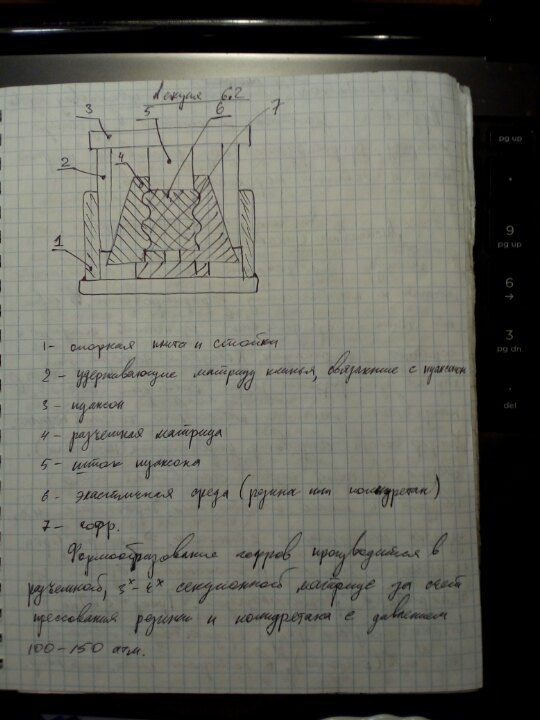 Лекция 6.2
3
5
6
7
2
4
1
1 - опорная плита и стойки
2 - удерживающие матрицу клинья, связанные с пуансоном
3 - пуансон
4 - разъемная матрица
5 - шток пуансона
6 - эластичная среда (резина или полиуретан)
7 - гофр.
Формообразование гофров производится в
разъемной, 3х-4х секционной матрице за счет
прессования резины и полиуретана с давлением
100-150 атм.
pg up
9
pg up
6
→
3
pg dn
.
del